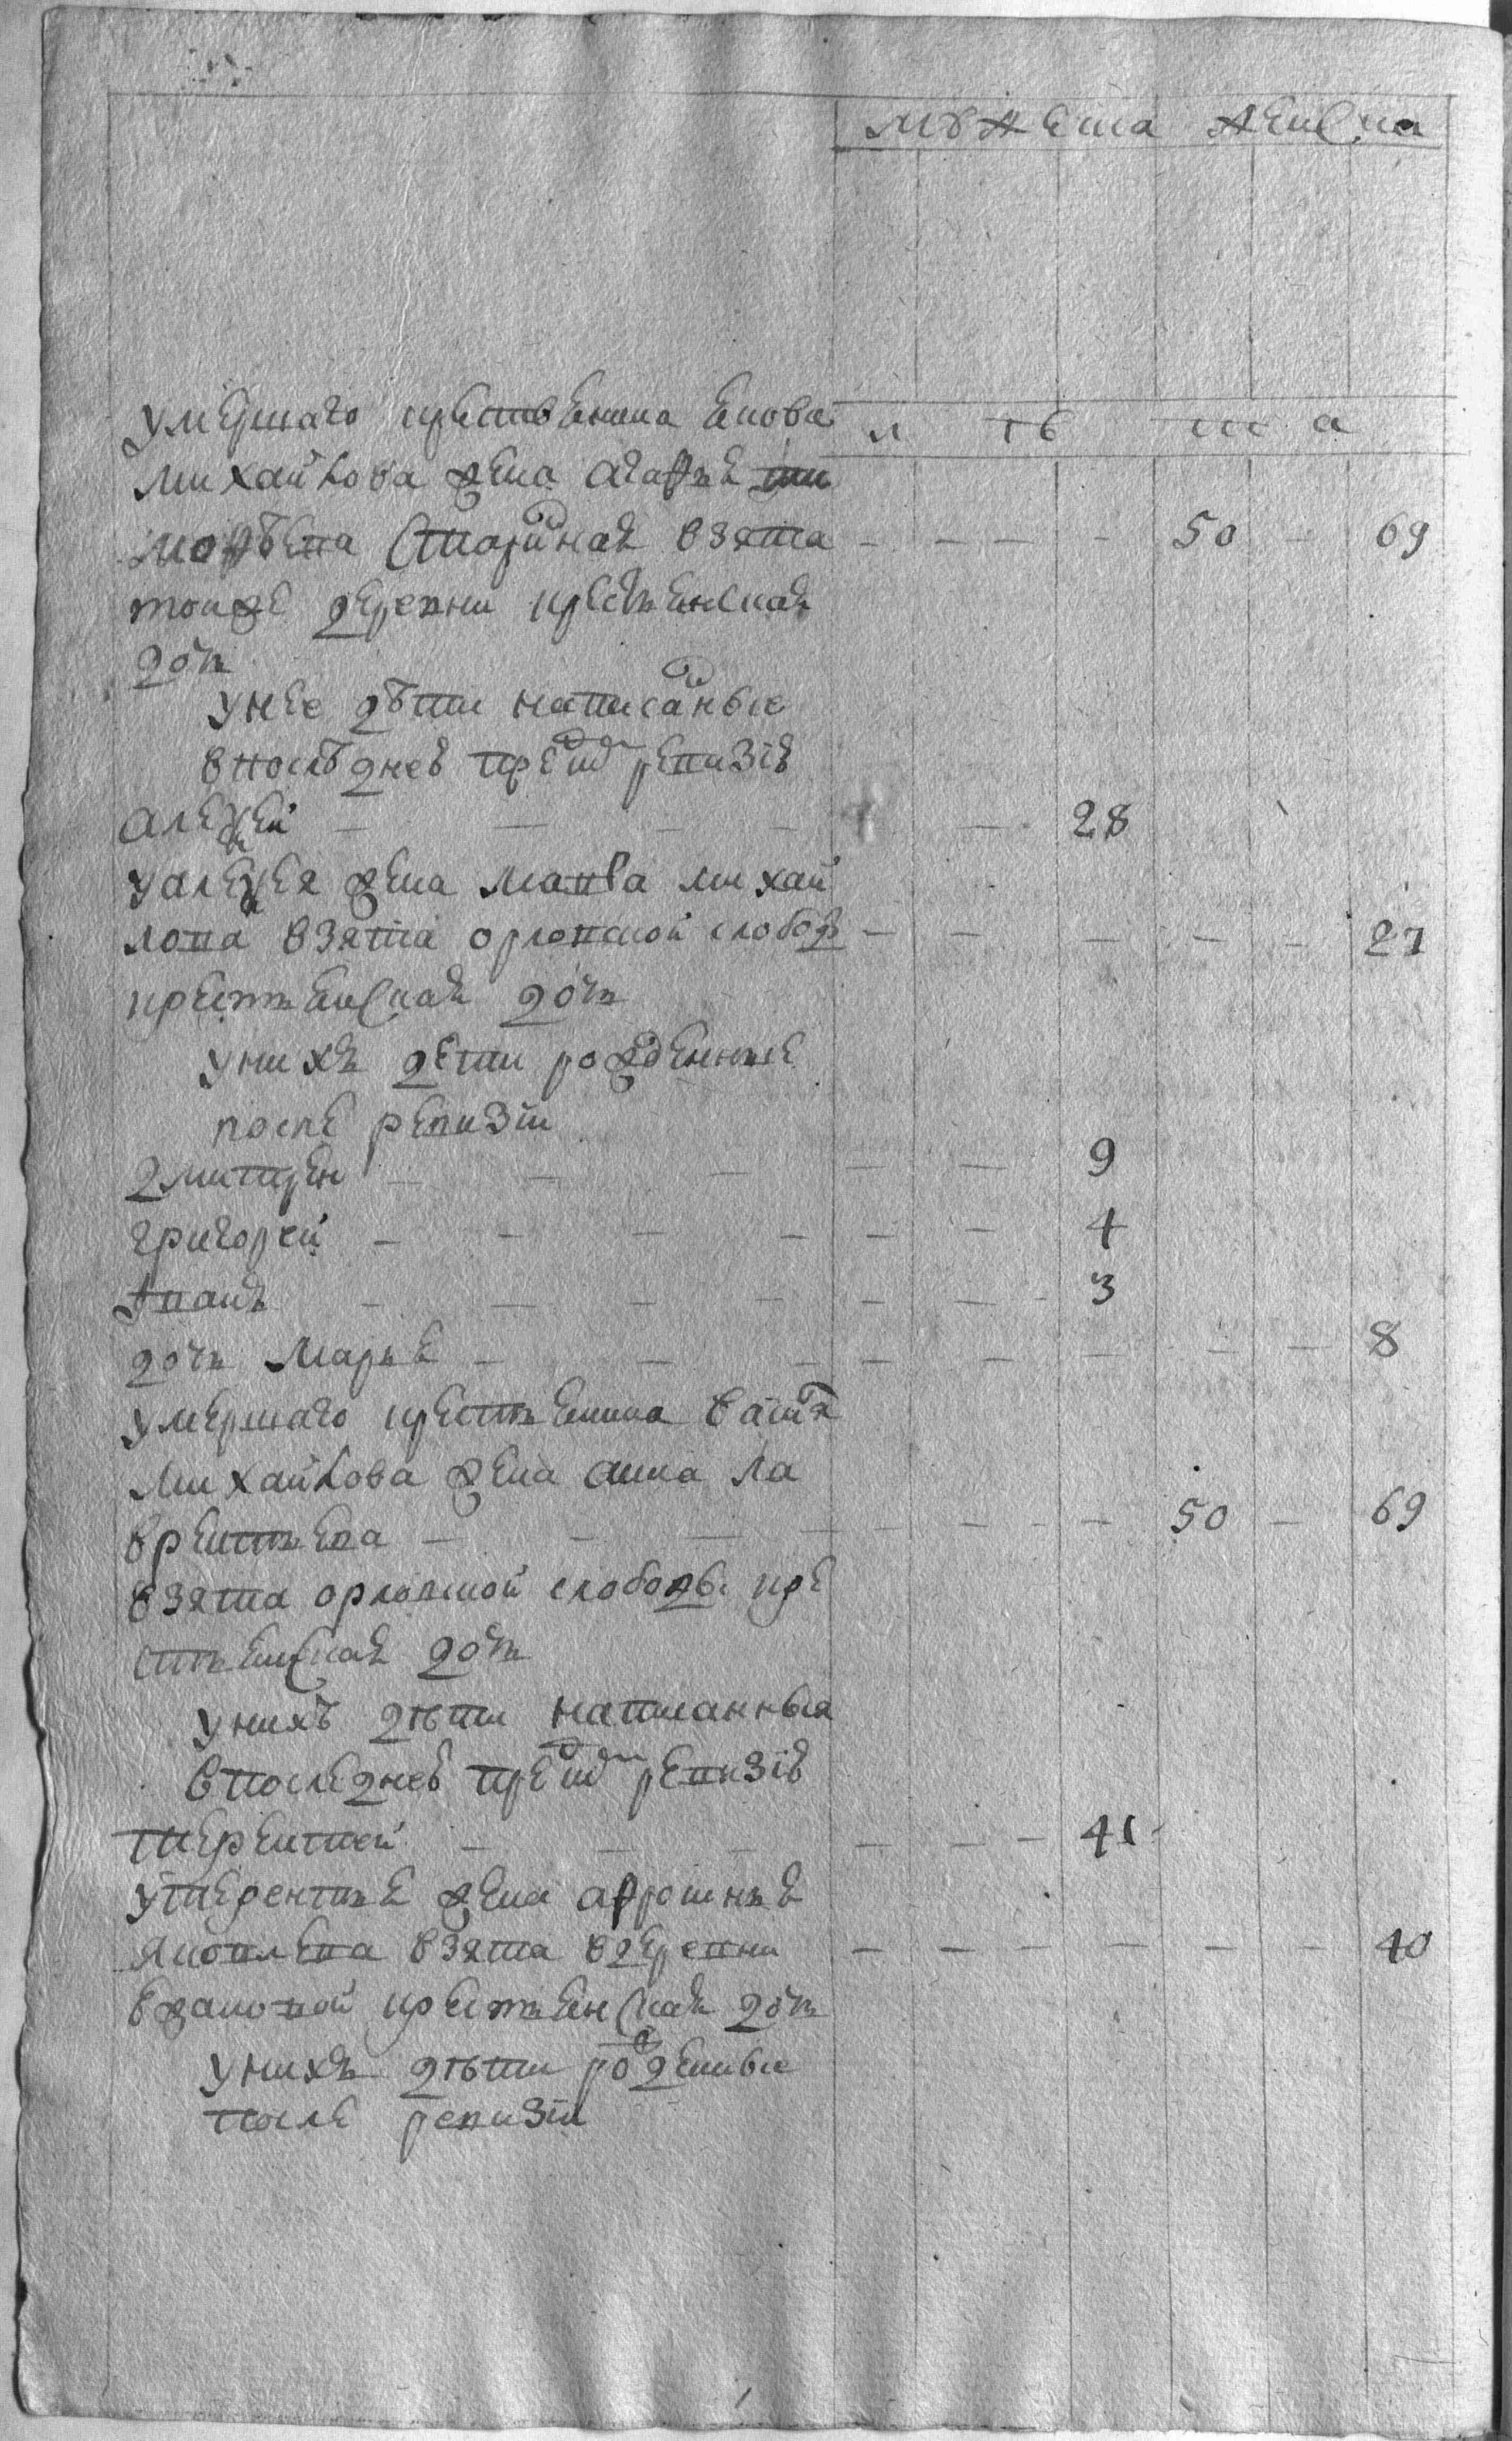 мужеска женска
л ѣ т а
умершаго крестьенина якова
михайлова жена агафья ти
мофѣева старинная взята - - - - 50 - 69
тоиже деревни крестьенская
дочь
унее дѣти написанные
впослѣднеѣ пред ревизіѣ
алеѯей - - - - - 28
уалеѯея жена мавра михай
лова взята орловской слобод - - - - - 27
крестьенская дочь
унихъ дети рожденные
после ревизіи
дмитреи - - - - - 9
григорей - - - - - - - 4
иванъ - - - - - - - 3
дочь марья - - - - - - - - 8
умершаго крестьенина
михайлова жена анна ла
врентьева - - - - - - - 50 - 69
взята орловской слободы кре
стьенская дочь
унихъ дѣти написанныя
впоследнеѣ пред ревизіѣ
терентей - - - - - - 41
утерентья жена афросинья
яковлева взята вдеревни - - - - - - 40
крестьенская дочь
унихъ дѣти рожденные
после ревизіи